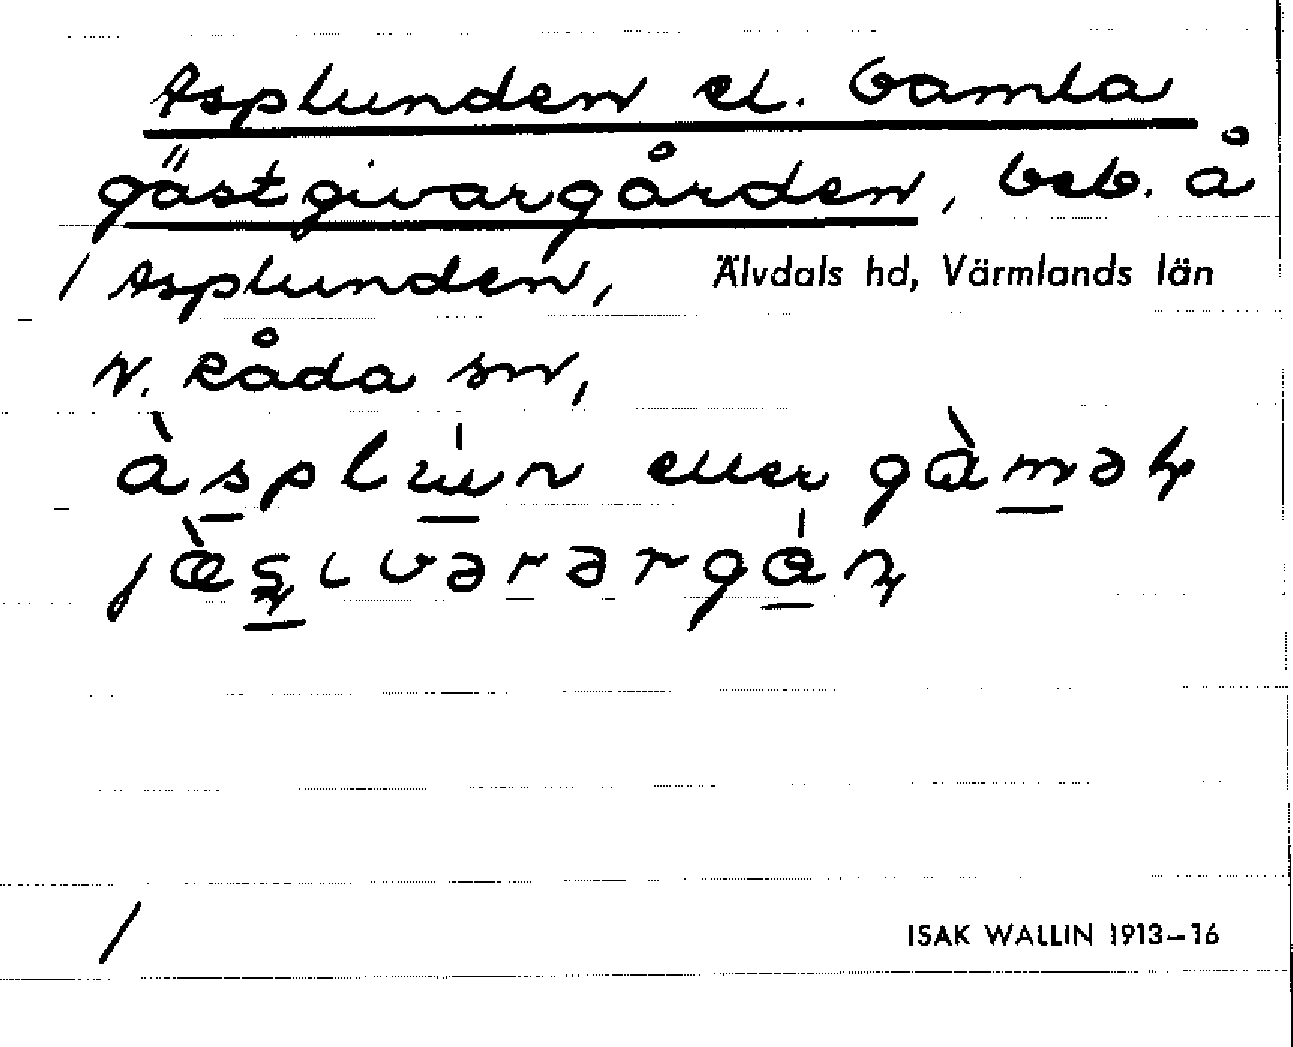 Asplunden el. Gamla
gästgivargården, beb. å
/ Asplunden, Älvdals hd, Värmlands län
N. Råda sn,
eller
/ ISAK WALLIN 1913–16